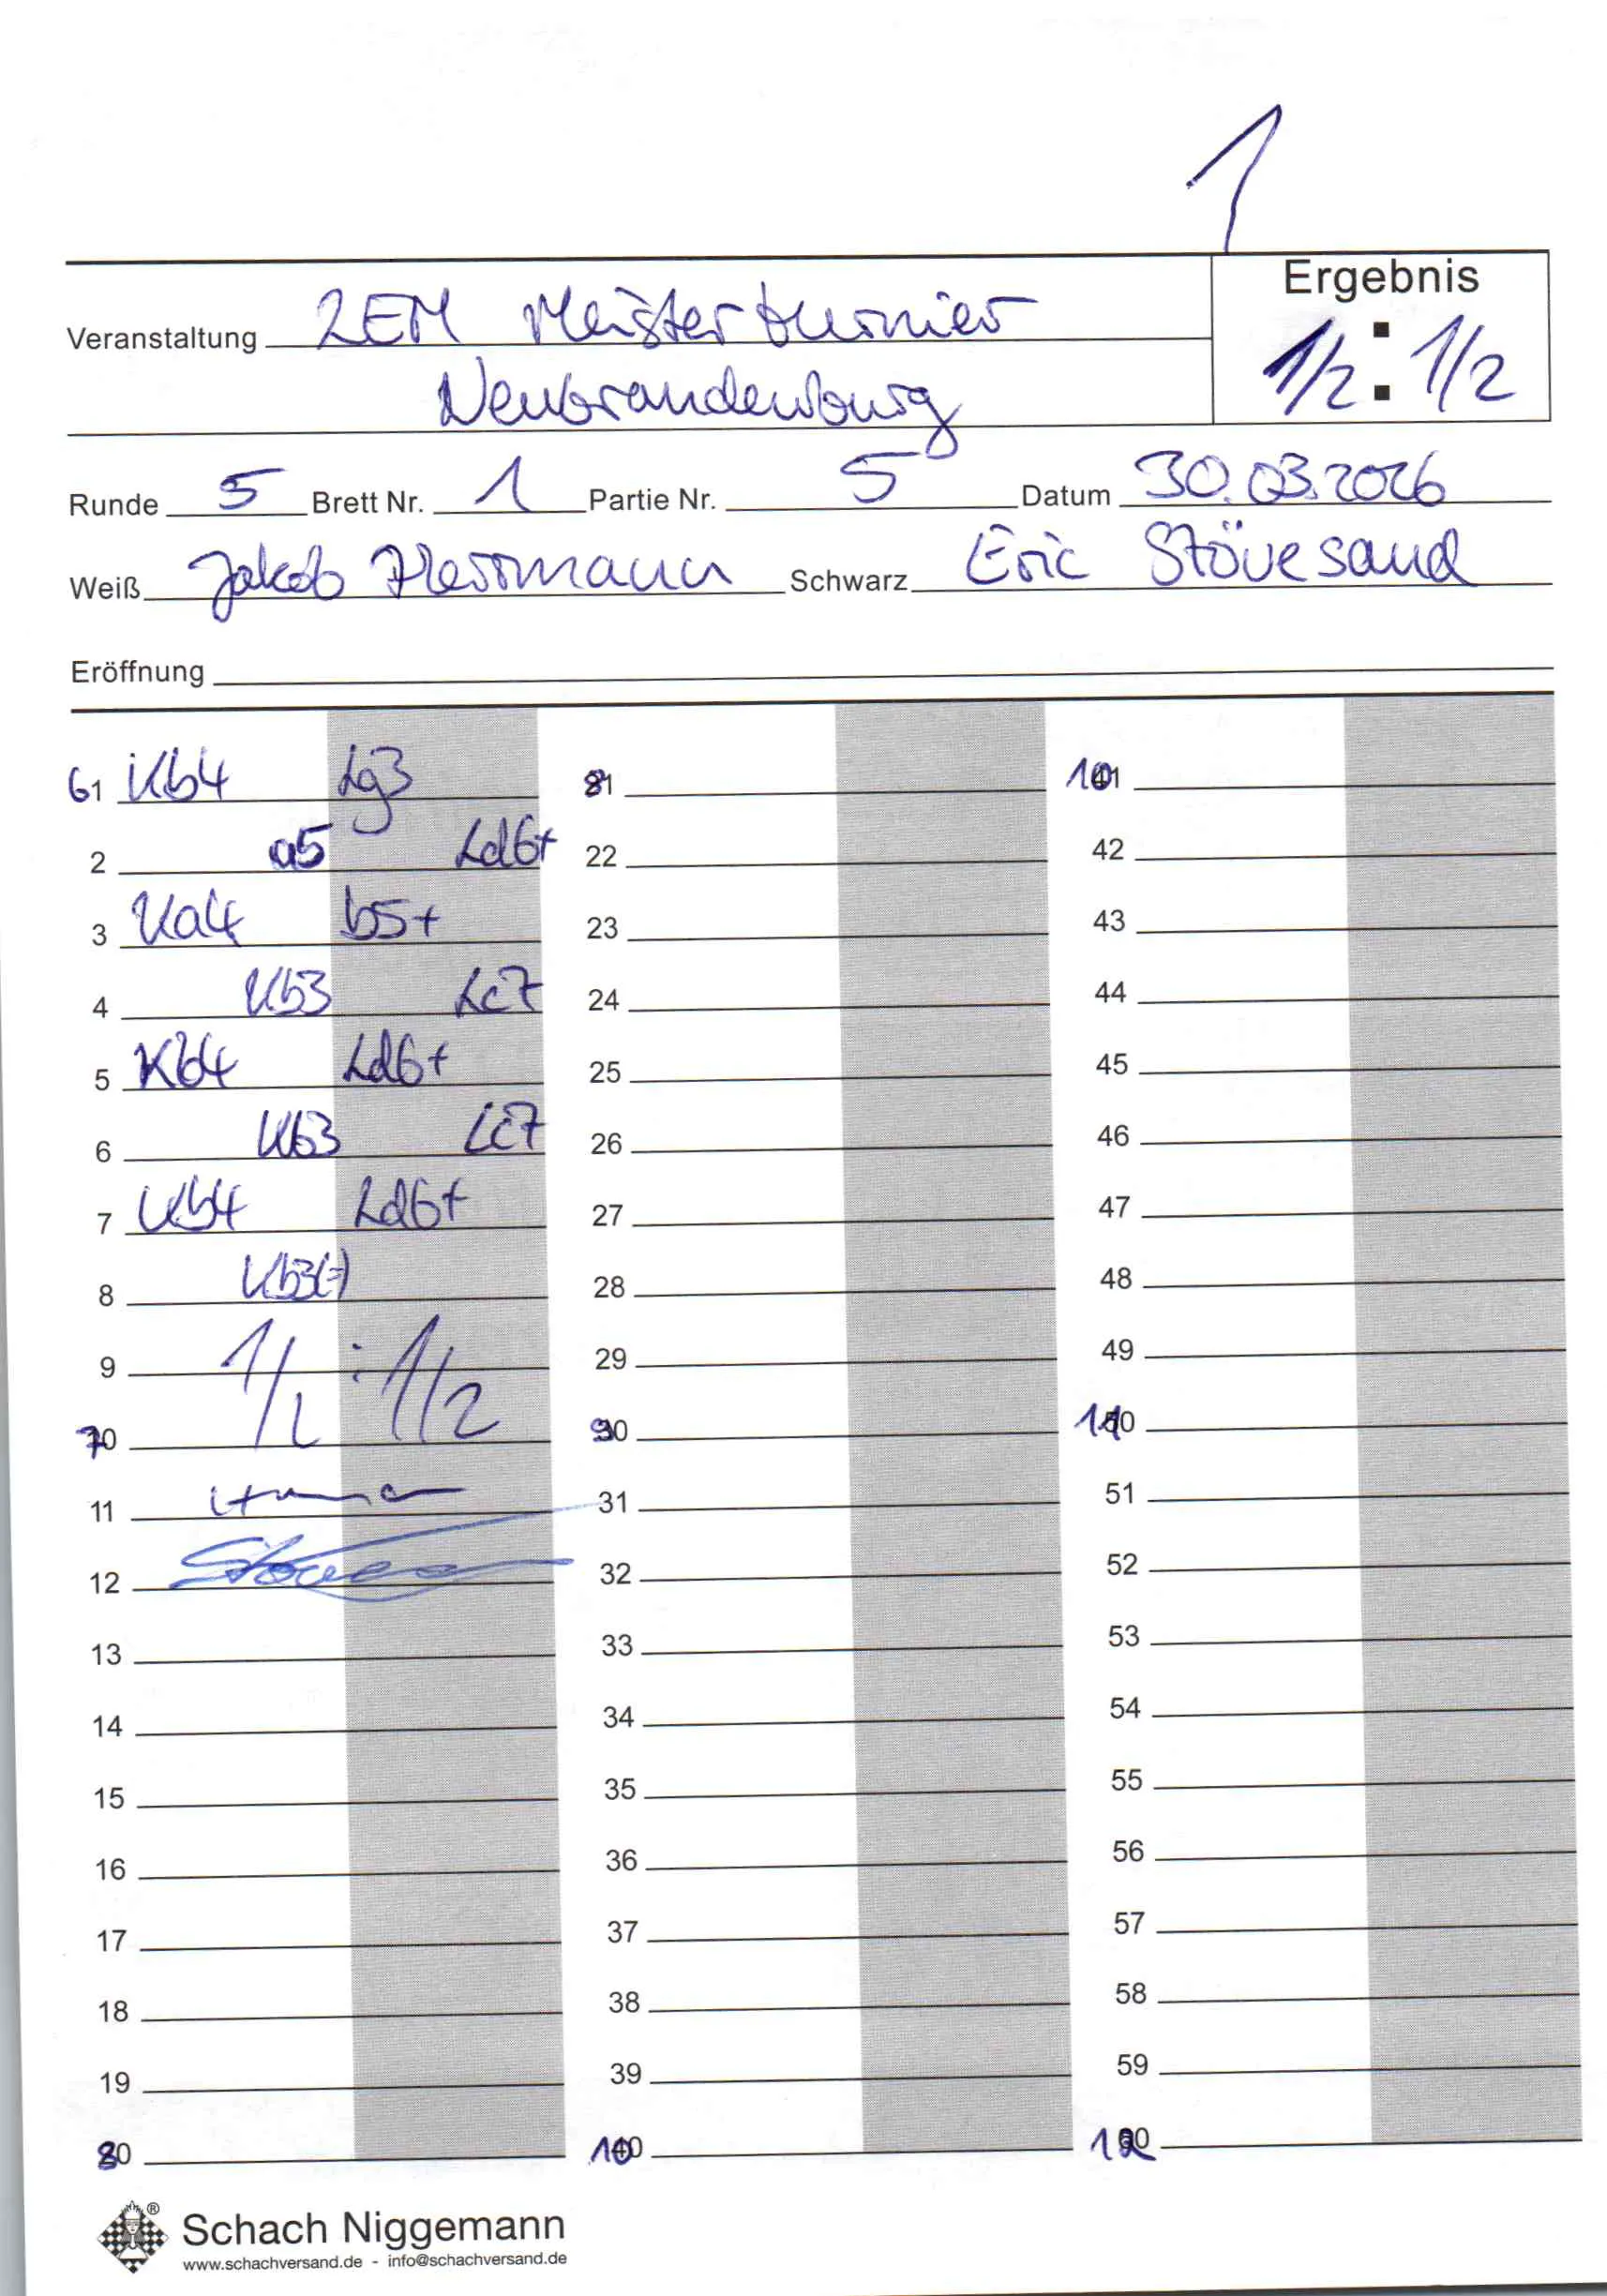 1
Ergebnis
Veranstaltung LEM Meisterturnier
1/2 : 1/2
Neubrandenburg
Runde 5 Brett Nr. 1 Partie Nr. 5 Datum 30.03.2026
Weiß Jakob Herrmann Schwarz Eric Stövesand
Eröffnung
61 Kb4 Lg3
2 a5 Ld6+
3 Ka4 b5+
4 Kb3 Lc7
5 Kb4 Ld6+
6 Kb3 Lc7
7 Kb4 Ld6+
8 Kb3(=)
9 1/2 : 1/2
70
11
12
13
14
15
16
17
18
19
80
81
22
23
24
25
26
27
28
29
90
31
32
33
34
35
36
37
38
39
100
101
42
43
44
45
46
47
48
49
110
51
52
53
54
55
56
57
58
59
120
Schach Niggemann
www.schachversand.de - info@schachversand.de